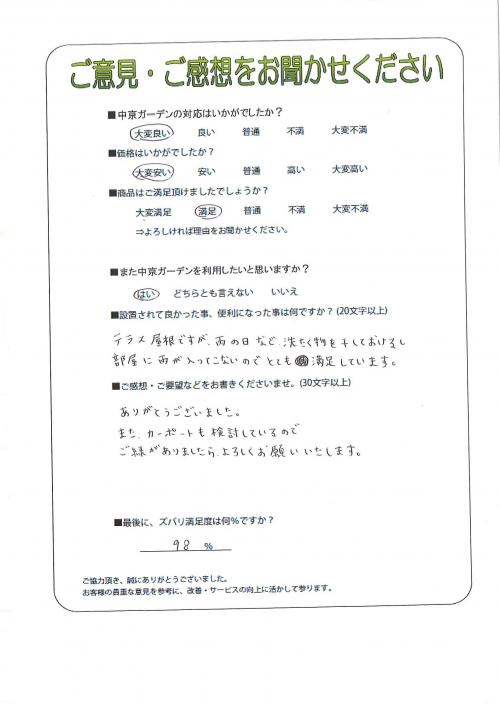 ご意見・ご感想をお聞かせください
■中京ガーデンの対応はいかがでしたか？
大変良い 良い 普通 不満 大変不満
■価格はいかがでしたか？
大変安い 安い 普通 高い 大変高い
■商品はご満足頂けましたでしょうか？
大変満足 満足 普通 不満 大変不満
⇒よろしければ理由をお聞かせください。
■また中京ガーデンを利用したいと思いますか？
はい どちらとも言えない いいえ
■設置されて良かった事、便利になった事は何ですか？(20文字以上)
テラス屋根ですが、雨の日など、洗たく物を干しておけるし
部屋に雨が入ってこないのでとても満足しています。
■ご感想・ご要望などをお書きくださいませ。(30文字以上)
ありがとうございました。
また、カーポートも検討しているので
ご縁がありましたら、よろしくお願いいたします。
■最後に、ズバリ満足度は何％ですか？
98 %
ご協力頂き、誠にありがとうございました。
お客様の貴重な意見を参考に、改善・サービスの向上に活かして参ります。